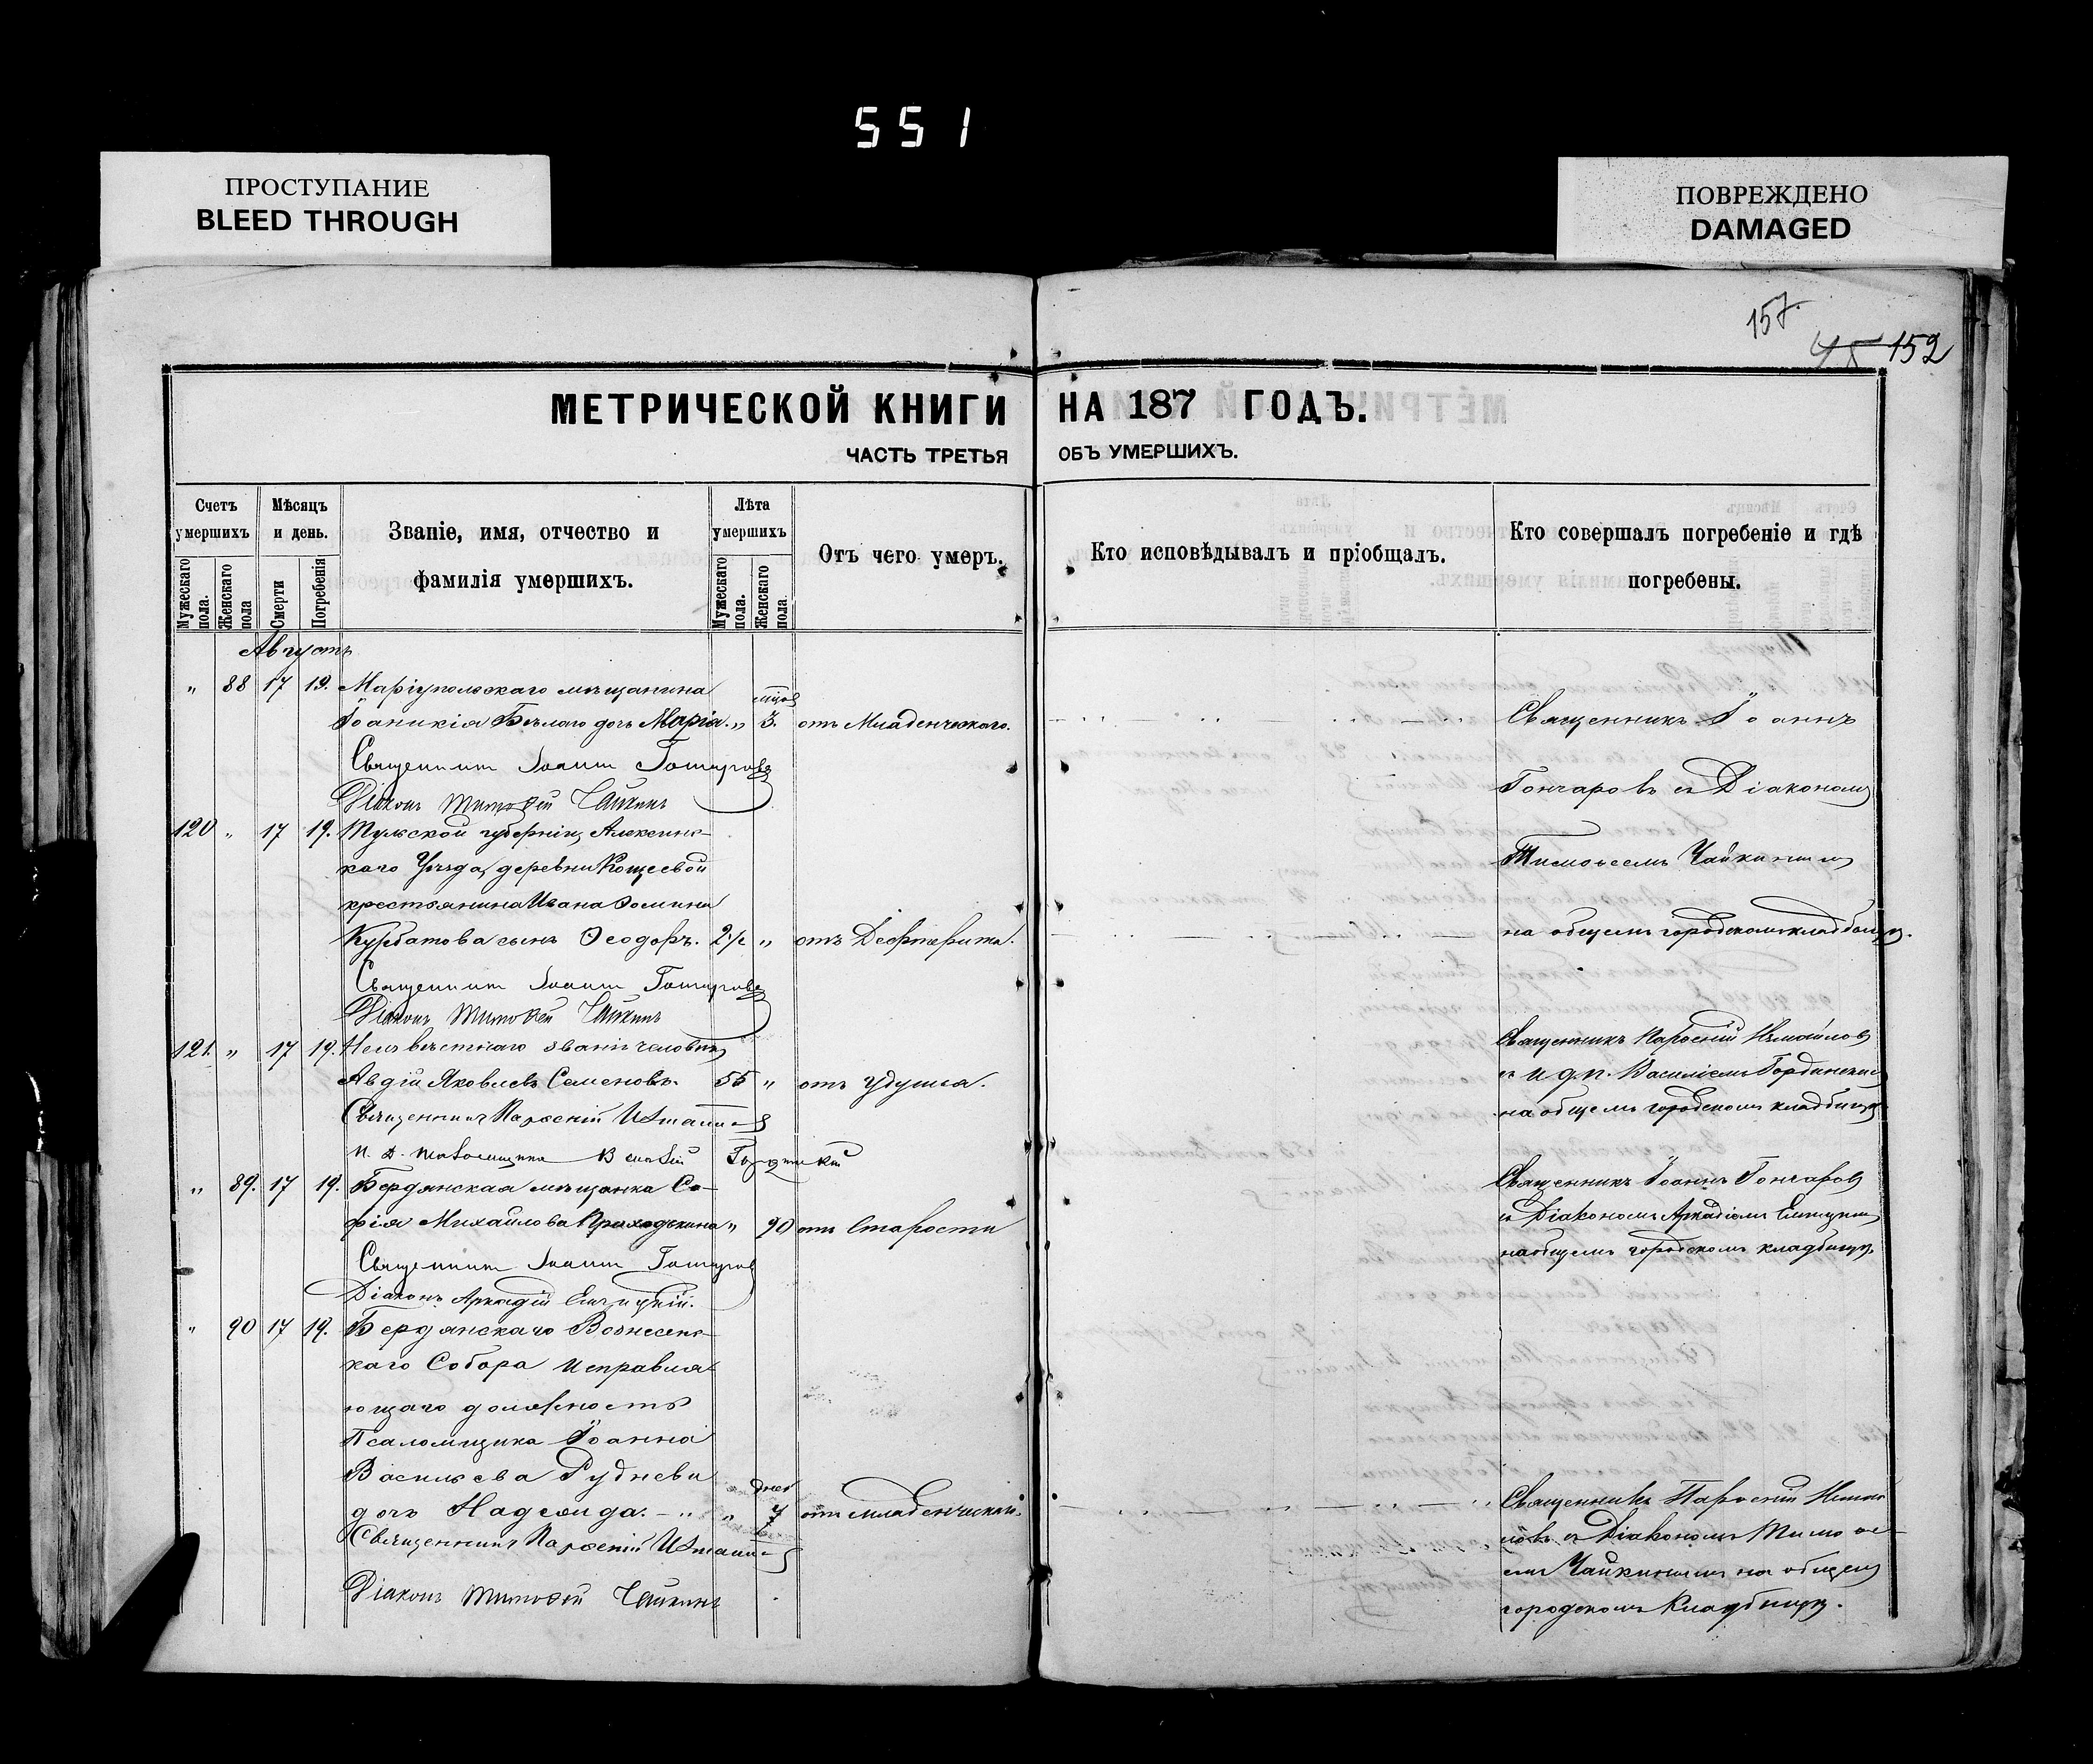 551
ПРОСТУПАНИЕ
BLEED THROUGH
ПОВРЕЖДЕНО
DAMAGED
157.
152
МЕТРИЧЕСКОЙ КНИГИ НА 187 ГОДЪ.
ЧАСТЬ ТРЕТЬЯ ОБЪ УМЕРШИХЪ.
Счетъ умершихъ
Мужескаго пола.
Женскаго пола
Мѣсяцъ и день.
Смерти
Погребенія
Званіе, имя, отчество и
фамилія умершихъ.
Лѣта умершихъ
Мужескаго пола.
Женскаго пола.
Отъ чего умеръ.
Кто исповѣдывалъ и пріобщалъ.
Кто совершалъ погребеніе и гдѣ
погребены.
Августъ
" 88 17 19. Маріупольскаго мѣщанина
Іоаникія Бѣлаго дочь Марія. " 3. отъ Младенческаго.
Священникъ Іоаннъ
Священникъ Іоаннъ Гончаровъ
Гончаровъ съ Діакономъ
Діаконъ Тимоѳей Чайкинъ
120 " 17 19. Тульской губерніи, Алексинс-
Тимоѳеемъ Чайкинымъ
каго Уѣзда, деревни Кощеевой
крестьянина Ивана Ѳомина
Курбатова сынъ Ѳеодоръ. 2 1/2 " отъ Дефтерита.
на общемъ городскомъ кладбищѣ.
Священникъ Іоаннъ Гончаровъ
Діаконъ Тимоѳей Чайкинъ
121. " 17 19. Неизвѣстнаго званія человѣкъ
Священникъ Парѳеній Измаиловъ
Авдій Яковлевъ Семеновъ. 55 " отъ удушья.
съ И. д. п. Василіемъ Гординскимъ
Священникъ Парѳеній
на общемъ городскомъ кладбищѣ
И. д. псаломщика Василій Гординскій
" 89. 17 19. Бердянская мѣщанка Со-
Священникъ Іоаннъ Гончаровъ
фія Михайлова Приходькина " 90 отъ Старости
съ Діакономъ Аркадіемъ
на общемъ городскомъ кладбищѣ
Священникъ Іоаннъ Гончаровъ
Діаконъ Аркадій
" 90 17 19. Бердянскаго Вознесенс-
каго Собора исправля-
ющаго должность
Псаломщика Іоанна
Васильева Руднева
дней
дочь Надежда. " 7 отъ младенческой.
Священникъ Парѳеній Измаи-
Священникъ Парѳеній
ловъ съ Діакономъ Тимоѳе-
емъ Чайкинымъ на общемъ
Діаконъ Тимоѳей Чайкинъ
городскомъ Кладбищѣ.